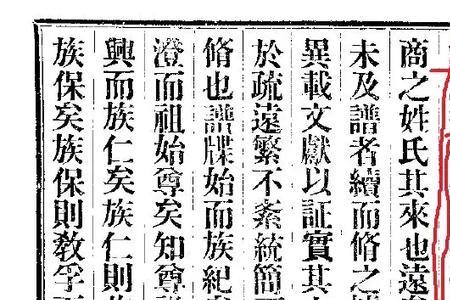 商之姓氏其來也遠
未及譜者續而脩之
異載文獻以証實其
於疏遠繁不紊統簡
脩也譜牒始而族紀
澄而祖始尊矣知尊
興而族仁矣族仁則
族保矣族保則教孚